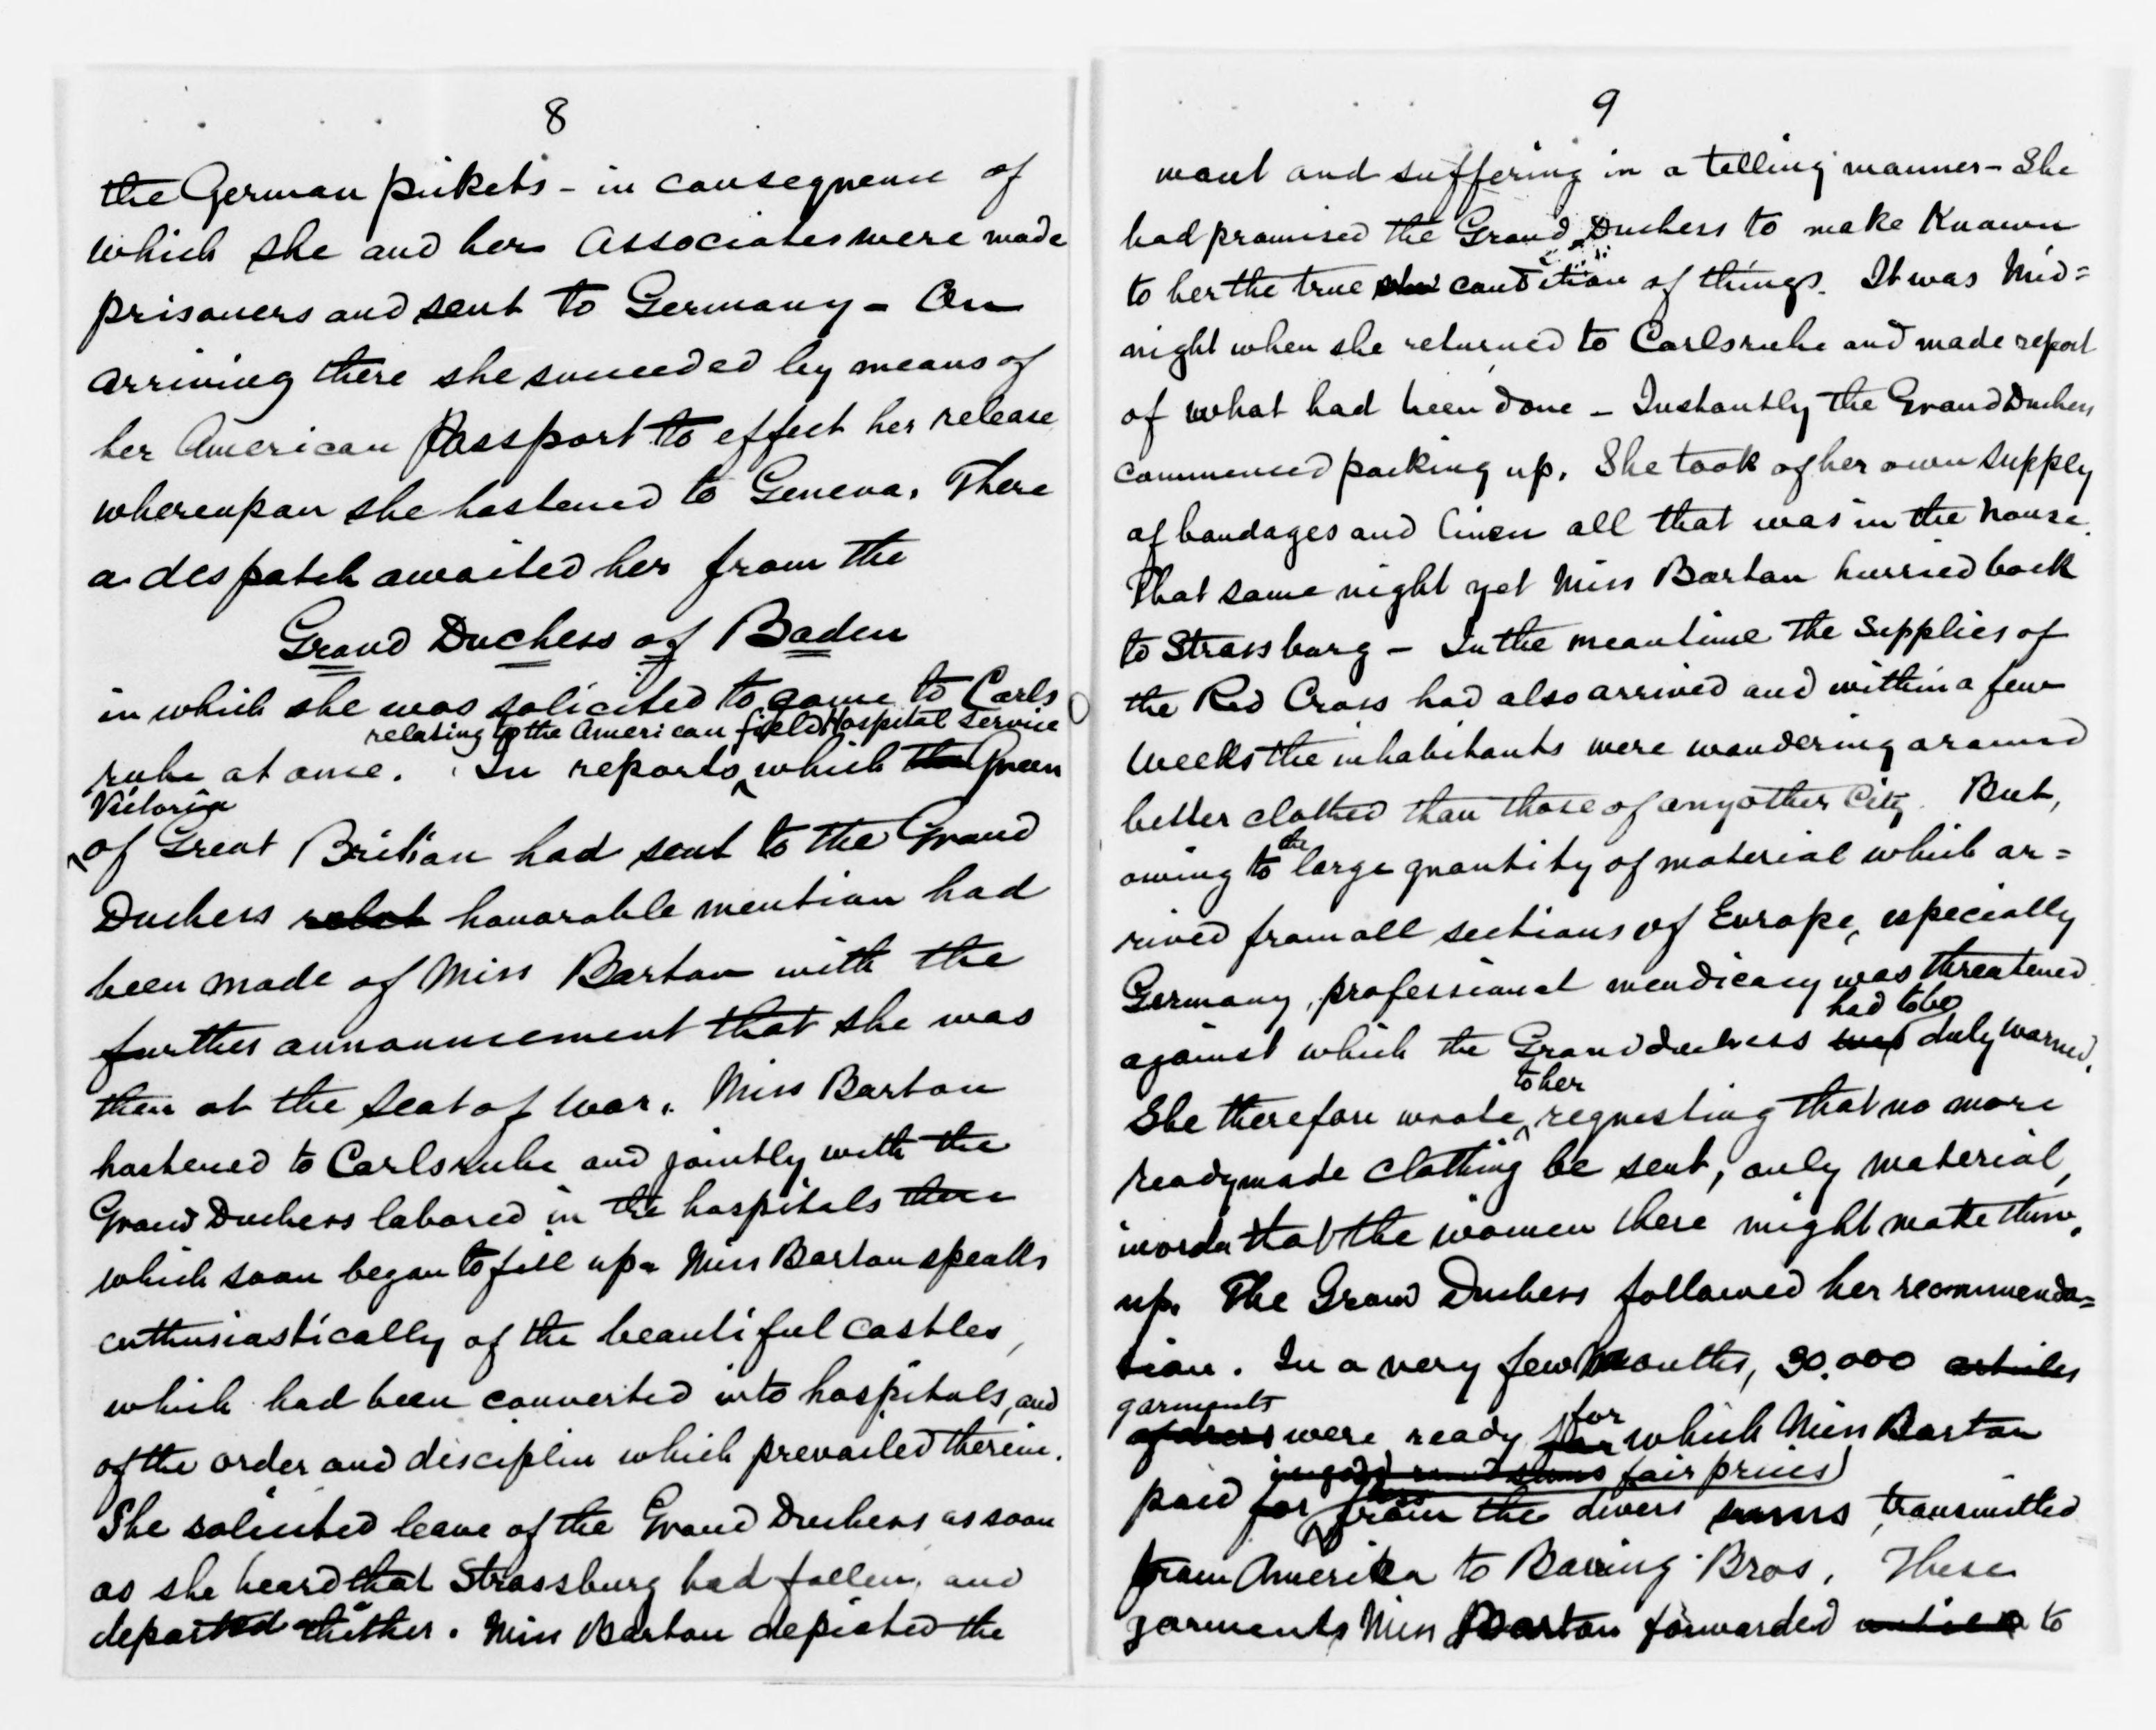 8
the German pickets - in consequence of
which she and her associates were made
prisoners and sent to Germany - On
arriving there she succeeded by means of
her American Passport to effect her release
whereupon she hastened to Geneva. There
a despatch awaited her from the
Grand Duchess of Baden
in which she was solicited to come to Carls
relating to the American field Hospital Service
ruhe at once. In reports which the Queen
Victoria
of Great Britian had sent to the Grand
Duchess relat honorable mention had
been made of Miss Barton with the
further announcement that she was
then at the seat of war. Miss Barton
hastened to Carlsruhe and jointly with the
Grand Duchess labored in the hospitals there
which soon began to fill up. Miss Barton speaks
enthusiastically of the beautiful castles,
which had been converted into hospitals, and
of the order and disciplin which prevailed therein.
She solicited leave of the Grand Duchess as soon
as she heard that Strassburg had fallen, and
departed thither. Miss Barton depicted the
9
want and suffering in a telling manner - She
had promised the Grand Duchess to make Known
to her the true condition of things. It was Mid=
night when she returned to Carlsruhe and made report
of what had been done - Instantly the Grand Duchess
commenced packing up. She took of her own supply
of bandages and linen all that was in the house.
That same night yet Miss Barton hurried back
to Strassburg - In the meantime the Supplies of
the Red Cross had also arrived and within a few
weeks the inhabitants were wandering around
better clothed than those of any other City. But,
the
owing to large quantity of material which ar=
rived from all sections of Europe, especially
Germany, professional mendicacy was threatened
had to be
against which the Grand duchess was duly warned.
to her
She therefore wrote requesting that no more
readymade clothing be sent, only material,
inorder that the women there might make them
up. The Grand Duchess followed her recommenda=
tion. In a very few Months, 30.000 articles
garments
of dress were ready for which Miss Barton
for
in good round sums fair prices
paid for from the divers sums transmitted
from Amerika to Baring Bros. These
garments Miss Barton forwarded to